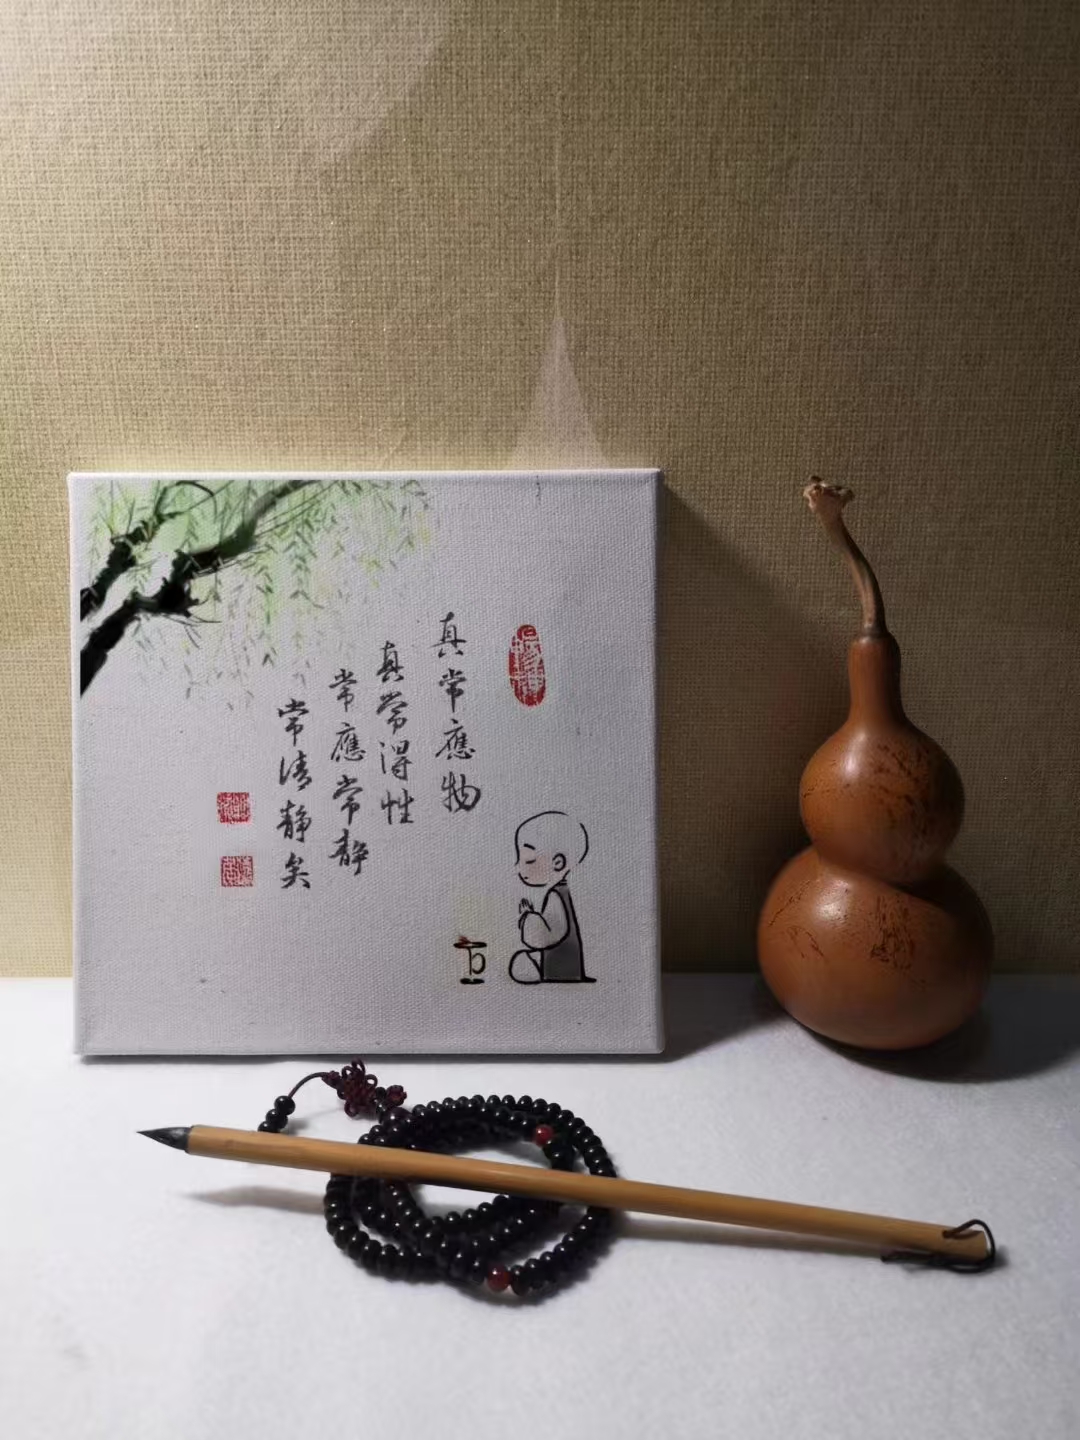 真常應物
真常得性
常應常静
常清静矣